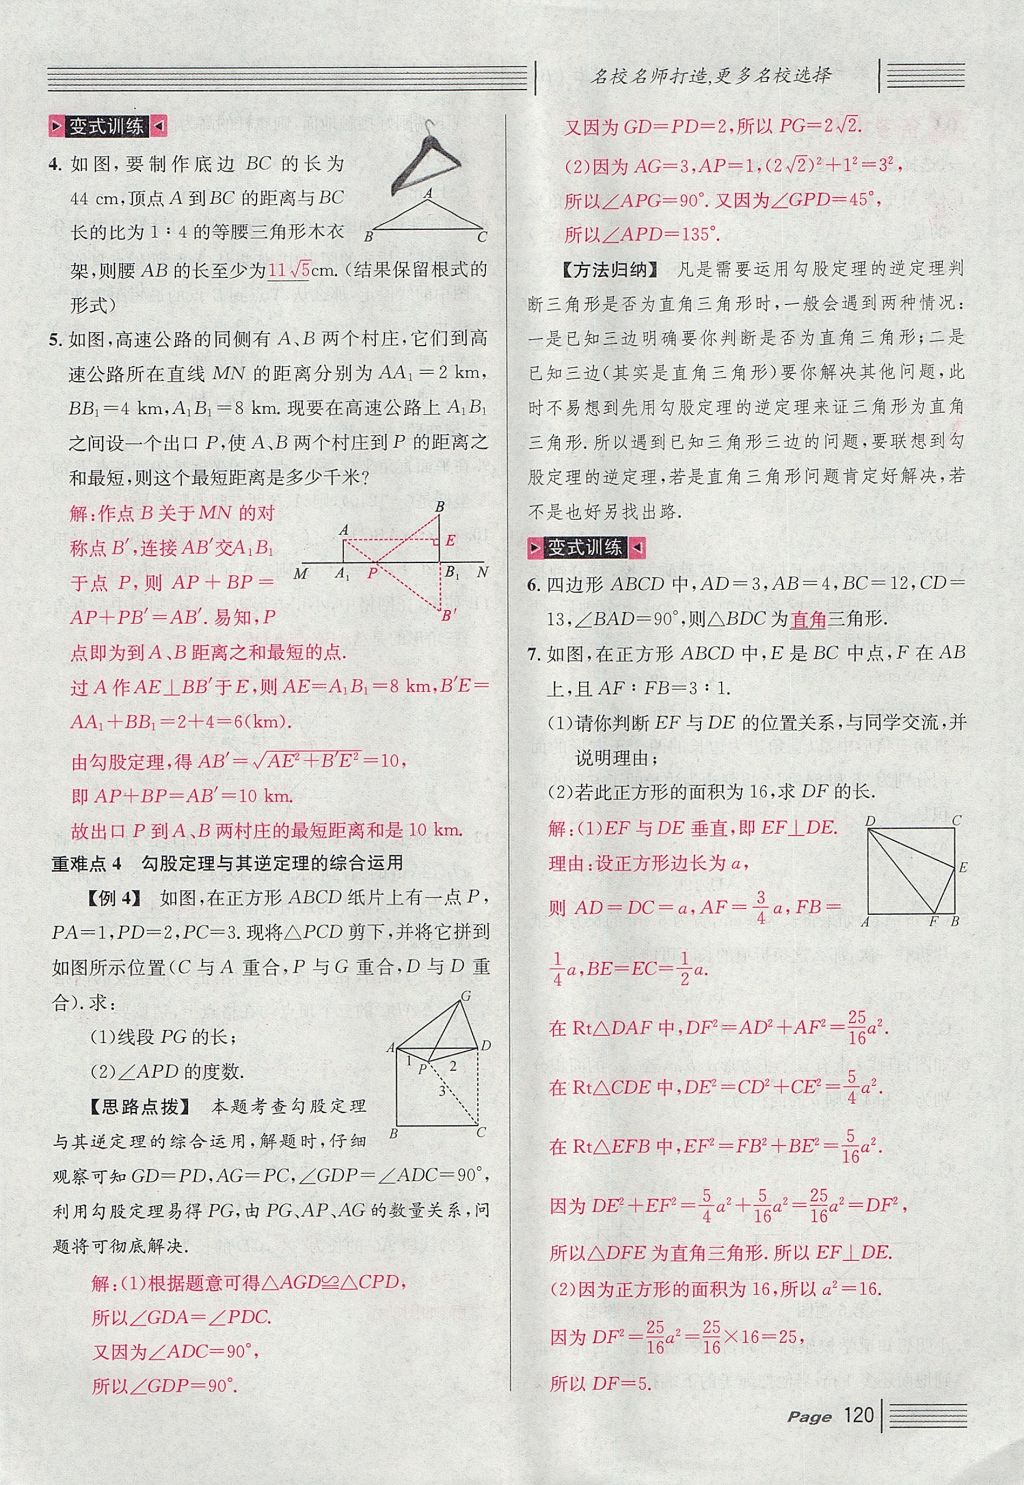 名校名师打造,更多名校选择
变式训练
4. 如图,要制作底边 BC 的长为
44 cm,顶点 A 到 BC 的距离与 BC
长的比为 1∶4 的等腰三角形木衣
架,则腰 AB 的长至少为 11√5 cm.(结果保留根式的
形式)
A
B
C
5. 如图,高速公路的同侧有 A、B 两个村庄,它们到高
速公路所在直线 MN 的距离分别为 AA₁=2 km,
BB₁=4 km,A₁B₁=8 km.现要在高速公路上 A₁B₁
之间设一个出口 P,使 A、B 两个村庄到 P 的距离之
和最短,则这个最短距离是多少千米?
解:作点 B 关于 MN 的对
称点 B′,连接 AB′交A₁B₁
于点 P,则 AP+BP=
AP+PB′=AB′.易知,P
点即为到 A、B 距离之和最短的点.
B
A
E
M
A₁
P
B₁
N
B′
过 A 作 AE⊥BB′于 E,则 AE=A₁B₁=8 km,B′E=
AA₁+BB₁=2+4=6(km).
由勾股定理,得 AB′=√(AE²+B′E²)=10,
即 AP+BP=AB′=10 km.
故出口 P 到 A、B 两村庄的最短距离和是 10 km.
重难点 4 勾股定理与其逆定理的综合运用
【例 4】 如图,在正方形 ABCD 纸片上有一点 P,
PA=1,PD=2,PC=3.现将△PCD 剪下,并将它拼到
如图所示位置(C 与 A 重合,P 与 G 重合,D 与 D 重
合).求:
(1)线段 PG 的长;
(2)∠APD 的度数.
G
A
D
1
P
2
3
B
C
【思路点拨】 本题考查勾股定理
与其逆定理的综合运用,解题时,仔细
观察可知 GD=PD,AG=PC,∠GDP=∠ADC=90°,
利用勾股定理易得 PG,由 PG、AP、AG 的数量关系,问
题将可彻底解决.
解:(1)根据题意可得△AGD≌△CPD,
所以∠GDA=∠PDC.
又因为∠ADC=90°,
所以∠GDP=90°.
又因为 GD=PD=2,所以 PG=2√2.
(2)因为 AG=3,AP=1,(2√2)²+1²=3²,
所以∠APG=90°.又因为∠GPD=45°,
所以∠APD=135°.
【方法归纳】 凡是需要运用勾股定理的逆定理判
断三角形是否为直角三角形时,一般会遇到两种情况:
一是已知三边明确要你判断是否为直角三角形;二是
已知三边(其实是直角三角形)要你解决其他问题,此
时不易想到先用勾股定理的逆定理来证三角形为直角
三角形.所以遇到已知三角形三边的问题,要联想到勾
股定理的逆定理,若是直角三角形问题肯定好解决,若
不是也好另找出路.
变式训练
6. 四边形 ABCD 中,AD=3,AB=4,BC=12,CD=
13,∠BAD=90°,则△BDC 为直角三角形.
7. 如图,在正方形 ABCD 中,E 是 BC 中点,F 在 AB
上,且 AF∶FB=3∶1.
(1)请你判断 EF 与 DE 的位置关系,与同学交流,并
说明理由;
(2)若此正方形的面积为 16,求 DF 的长.
解:(1)EF 与 DE 垂直,即 EF⊥DE.
理由:设正方形边长为 a,
则 AD=DC=a,AF=3/4 a,FB=
1/4 a,BE=EC=1/2 a.
D
C
E
A
F
B
在 Rt△DAF 中,DF²=AD²+AF²=25/16 a².
在 Rt△CDE 中,DE²=CD²+CE²=5/4 a².
在 Rt△EFB 中,EF²=FB²+BE²=5/16 a².
因为 DE²+EF²=5/4 a²+5/16 a²=25/16 a²=DF²,
所以△DFE 为直角三角形.所以 EF⊥DE.
(2)因为正方形的面积为 16,所以 a²=16.
因为 DF²=25/16 a²=25/16×16=25,
所以 DF=5.
Page 120